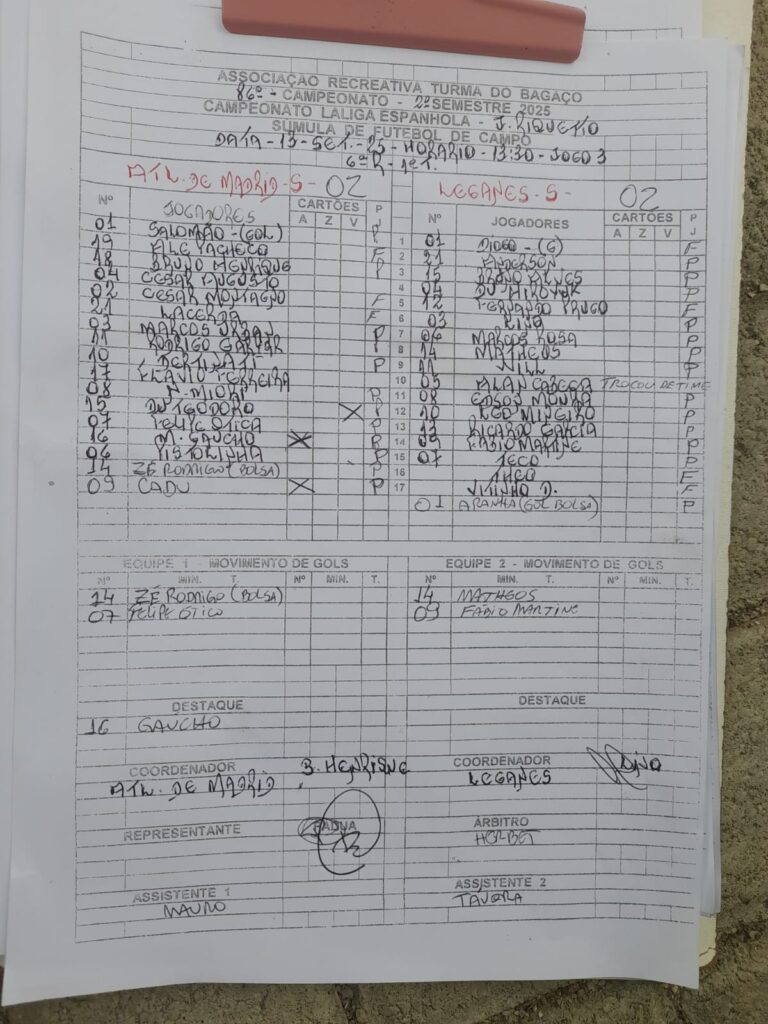 ASSOCIAÇÃO RECREATIVA TURMA DO BAGAÇO
86º - CAMPEONATO - 2º SEMESTRE 2025
CAMPEONATO LALIGA ESPANHOLA - J. RIQUETTO
SÚMULA DE FUTEBOL DE CAMPO
DATA - 13 - SET. - 25 - HORARIO - 13:30 - JOGO 3
6ª R - 1º T.
ATL. DE MADRID - S - 02
Nº JOGADORES CARTÕES P
A Z V J
01 SALOMÃO - (GOL) P
19 ALE PACHECO F
18 BRUNO HENRIQUE P
04 CESAR AUGUSTO
02 CESAR MONTAGNO F
21 LACERDA F
03 MARCOS P
11 RODRIGO
10 P
17 FLAVIO FERREIRA
08 P
15 DU TEODORO X P
07 FELIPE OTICA P
16 M. GAUCHO X P
06 VISTORINHA P
14 ZÉ RODRIGO (BOLSA) P
09 CADU X P
LEGANES - S - 02
Nº JOGADORES CARTÕES P
A Z V J
1 01 DIOGO - (G) F
2 21 ANDERSON P
3 15 BRUNO ALVES P
4 04 P
5 12 FERNANDO F
6 03 P
7 06 MARCOS ROSA P
8 14 MATHEUS P
9 11 WILL P
10 05 ALAN CABEÇA TROCOU DE TIME
11 08 EDSON MOURA P
12 10 LEO MINEIRO P
13 13 RICARDO GARCIA P
14 09 FABIO MARTINE P
15 07 TECO P
16 THEO F
17 VITINHO D. F
01 ARANHA (GOL BOLSA) P
EQUIPE 1 - MOVIMENTO DE GOLS
Nº MIN. T. Nº MIN. T.
14 ZÉ RODRIGO (BOLSA)
07 FELIPE OTICO
EQUIPE 2 - MOVIMENTO DE GOLS
Nº MIN. T. Nº MIN. T.
14 MATHEOS
09 FABIO MARTINE
DESTAQUE
16 GAUCHO
DESTAQUE
COORDENADOR B. HENRIQUE
ATL. DE MADRID
COORDENADOR
LEGANES
REPRESENTANTE
ÁRBITRO
HERBET
ASSISTENTE 1
MAURO
ASSISTENTE 2
TÁVORA